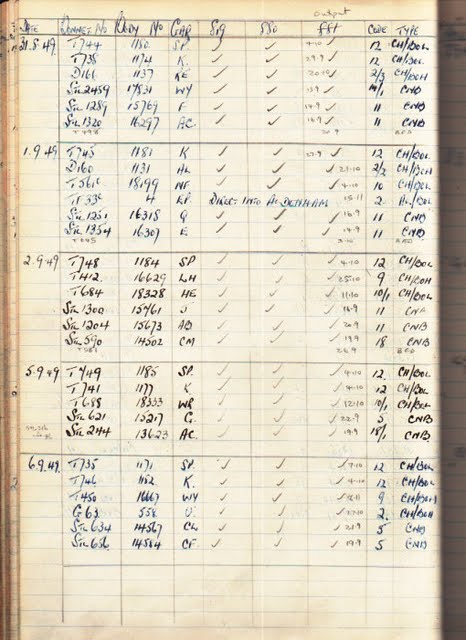 Output
DATE BONNET NO BODY NO GAR Sig SSO EST CODE TYPE
31.8.49 T744 1180 SP ✓ ✓ 4.10 ✓ 12 CH/BOL
T738 1174 K ✓ ✓ 29.9 ✓ 12 CH/BOL
D166 1137 KE ✓ ✓ 20.10 ✓ 2/3 CH/BCH
STL 2459 17831 WY ✓ ✓ 13.9 ✓ 10/1 CNB
STL 1289 15769 F ✓ ✓ 14.9 ✓ 11 CNB
STL 1320 16297 AC ✓ ✓ 16.9 ✓ 11 CNB
1.9.49 T745 1181 K ✓ ✓ 27.9 ✓ 12 CH/BOL
D160 1131 AL ✓ ✓ ✓ 25.10 2/2 CH/BCH
18199 ✓ ✓ ✓ 4.10 10 CH/BOL
4 DIRECT INTO ALDENHAM 25.11 2
STL 1251 16318 G ✓ ✓ ✓ 16.9 11 CNB
STL 1354 16307 E ✓ ✓ ✓ 14.9 11 CNB
2.9.49 T748 1184 SP ✓ ✓ ✓ 4.10 12 CH/BOL
T412 16629 LH ✓ ✓ ✓ 25.10 9 CH/BCH
T684 18328 HE ✓ ✓ ✓ 11.10 10/1 CH/BOL
STL 1300 15761 J ✓ ✓ ✓ 16.9 11 CNB
STL 1204 15673 AB ✓ ✓ ✓ 20.9 11 CNB
STL 590 14502 CM ✓ ✓ ✓ 19.9 18 CNB
5.9.49 T749 1185 SP. ✓ ✓ ✓ 4.10 12 CH/BOL
T741 1177 K ✓ ✓ ✓ 4.10 12 CH/BOL
T688 18333 WR ✓ ✓ ✓ 12.10 10/1 CH/BOL
STL 621 15217 G. ✓ ✓ ✓ 22.9 5 CNB
STL 244 13623 AC. ✓ ✓ ✓ 19.9 18/1 CNB
6.9.49 T735 1171 SP. ✓ ✓ ✓ 7.10 12 CH/BOL
T746 1182 K. ✓ ✓ ✓ 4.10 12 CH/BOL
T450 16667 WY ✓ ✓ ✓ 9 CH/BCH
G63 558 U. ✓ ✓ ✓ 27.10 2 CH/BCH
STL 634 14567 CL ✓ ✓ ✓ 21.9 5 CNB
STL 656 14584 CF. ✓ ✓ ✓ 19.9 5 CNB